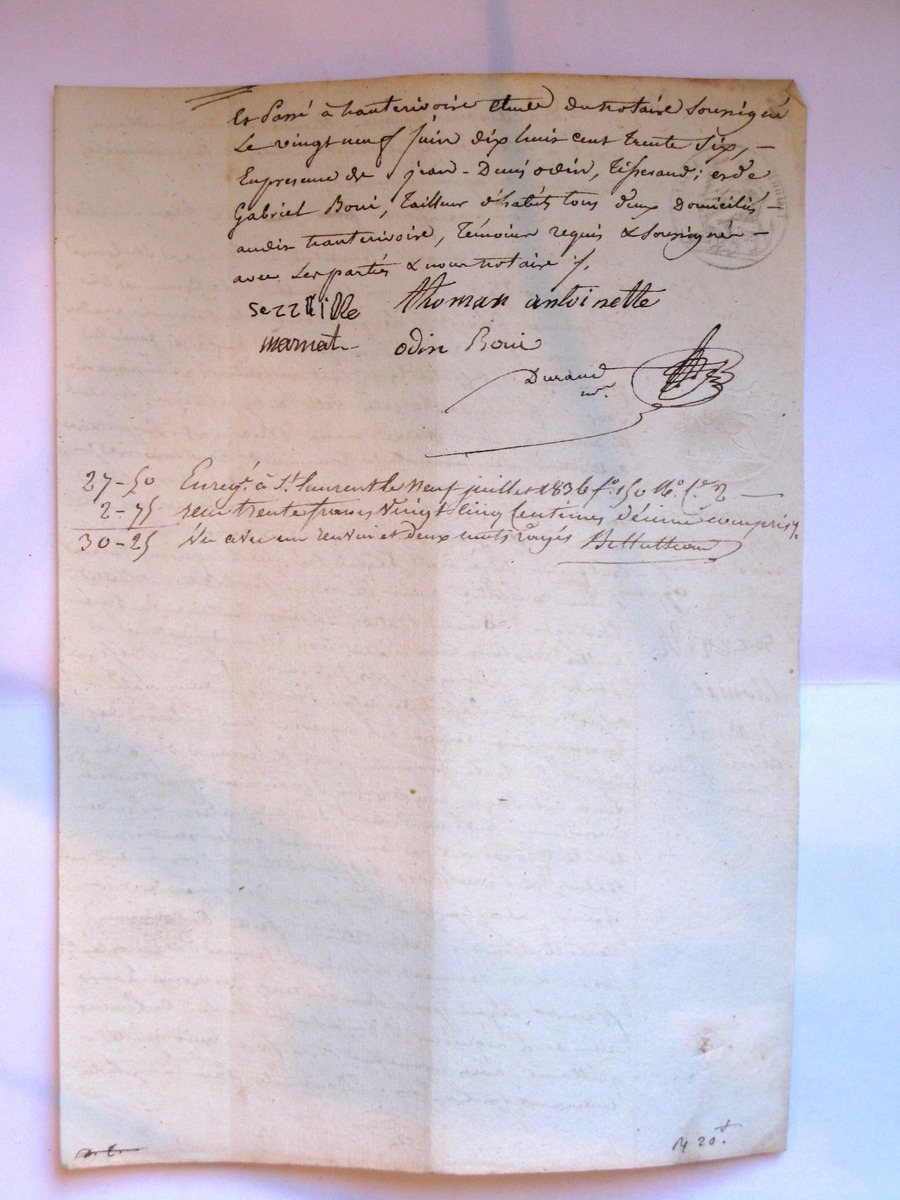 et Passé à hauterivoire étude du notaire soussigné
Le vingt neuf juin dix huit cent trente six, —
En presence de jean-Denis odin, Tisserand; et de
Gabriel Boni, Tailleur d'habits tous deux Domiciliés —
audit hauterivoire, témoins requis & soussignés —
avec les parties & nous notaire /.
thomas antoinette
odin Boni
Durand
nre.
27-50 Enregé. à St. laurent le neuf juillet 1836 fo. 150 Ro. Ce. 2 —
2-75 reçu trente francs vingt cinq Centimes décime compris /.
30-25 Vu avec un renvoi et deux mots rayés
20